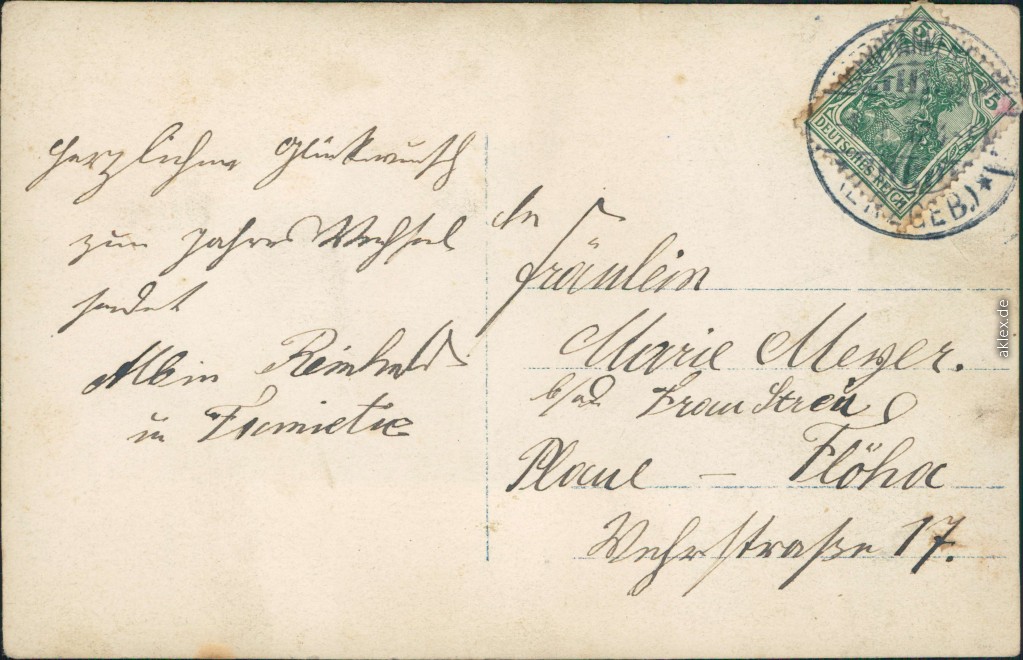 Herzlichen Glückwunsch
zum Jahres Wechsel
sendet
Albin Reinhold
in
An
Fräulein
Marie Meyer.
b/ad Frau Streu
Plaue – Flöha
Wehrstraße 17.
5
DEUTSCHES REICH
(ERZGEB.)
aklex.de